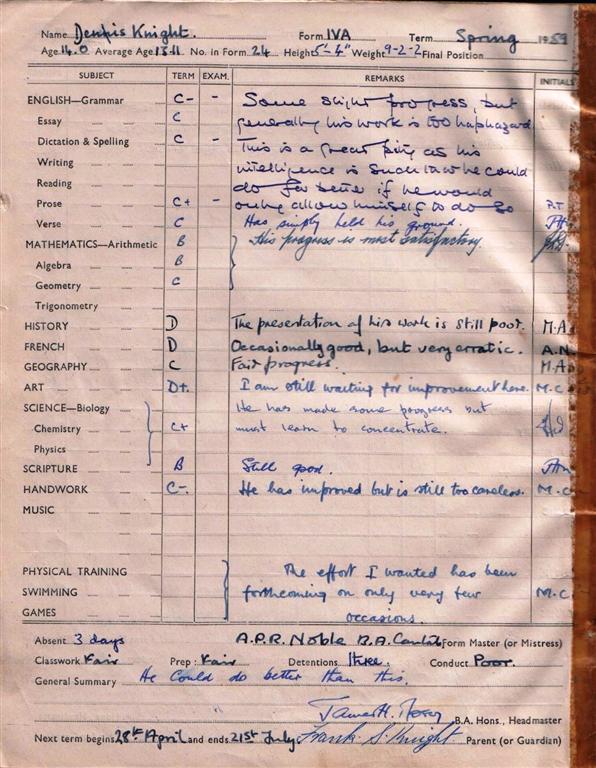 Name Dennis Knight. Form IVA Term Spring 1959
Age 14.0 Average Age 13.11 No. in Form 24 Height 5'-4" Weight 9-2-2 Final Position
SUBJECT TERM EXAM. REMARKS INITIALS
ENGLISH—Grammar C- - Some slight progress, but
Essay C generally his work is too haphazard.
Dictation & Spelling C - This is a great pity as his
Writing intelligence is such that he could
Reading do far better if he would
Prose C+ - only allow himself to do so P.T
Verse C Has simply held his ground.
MATHEMATICS—Arithmetic B His progress is most satisfactory.
Algebra B
Geometry C
Trigonometry
HISTORY D The presentation of his work is still poor. M.A
FRENCH D Occasionally good, but very erratic. A.N.
GEOGRAPHY C Fair progress. M.A
ART D+. I am still waiting for improvement here. M.C
SCIENCE—Biology He has made some progress but
Chemistry C+ must learn to concentrate.
Physics
SCRIPTURE B Still good.
HANDWORK C-. He has improved but is still too careless. M.C
MUSIC
PHYSICAL TRAINING The effort I wanted has been
SWIMMING forthcoming on only very few M.C
GAMES occasions.
Absent 3 days A.P.R. Noble B.A. Cantab Form Master (or Mistress)
Classwork Fair Prep: Fair Detentions three. Conduct Poor.
General Summary He could do better than this.
James H. B.A. Hons., Headmaster
Next term begins 28th April and ends 21st July Frank S. Knight Parent (or Guardian)